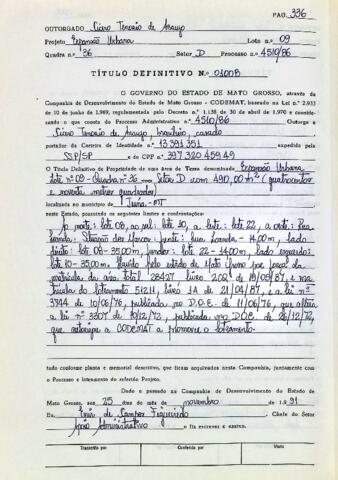 PAG. 336
OUTORGADO Cícero Tenorio de Araujo
Projeto Expansão Urbana Lote n.o 09
Quadra n.o 36 Setor D Processo n.o 4510/86
TÍTULO DEFINITIVO N.o 01008
O GOVERNO DO ESTADO DE MATO GROSSO, através da
Companhia de Desenvolvimento do Estado de Mato Grosso - CODEMAT, baseado na Lei n.o 2.933
de 10 de junho de 1989, regulamentado pelo Decreto n.o 1.138 de 30 de abril de 1970 e constituindo
o que consta do Processo Administrativo n.o 4510/86 Outorga a
Cícero Tenorio de Araujo, brasileiro, casado
portador da Carteira de Identidade n.o 13 391 351 expedida pela
SSP/SP e do CPF n.o 397 320 459 49
O Título Definitivo de Propriedade de uma área de Terra denominada Expansão Urbana
lote nº 09 - Quadra nº 36 Setor D com 490,00 m² (quatrocentos
e noventa metros quadrados)
localizada no município de Juína - MT
neste Estado, passando os seguintes limites e confrontações:
ao norte: lote 08, ao sul: lote 10, a leste: lote 22, a oeste: Rua
frente: 14,00m, lado
direito: lote 08 - 35,00m, fundos: lote 22 - 14,00m, lado esquerdo:
lote 10 - 35,00m, pelo estado de Mato Grosso por força da
matrícula da área total livro 2.02 de 18/09/87, e ma
trícula do loteamento 51211, livro 1A de 21/04/87, e a lei nº
3744 de 10/06/76, publicada no D.O.E. de 11/06/76, que altera
a lei nº 3307 de 10/12/72, publicada no D.O.E. de 26/12/72,
que autoriza a CODEMAT a promover o loteamento.
tudo conforme planta e memorial descritivo, que ficam arquivados nesta Companhia, juntamente com
o Processo e loteamento do referido Projeto.
Dado e passado na Companhia de Desenvolvimento do Estado de
Mato Grosso, aos 25 dias do mês de novembro de 1.991
Eu, Enir de Campos Figueiredo Chefe do Setor
Apoio Administrativo o fiz escrever e assino.
Transcrito por Conferido por Visto